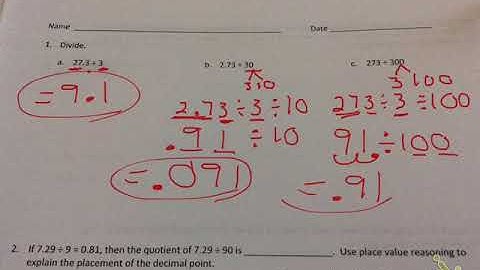 Name Date
1. Divide.
a. 27.3 ÷ 3 b. 2.73 ÷ 30 c. 273 ÷ 300
3 10 3 100
= 9.1 2.73 ÷ 3 ÷ 10 273 ÷ 3 ÷ 100
.91 ÷ 10 91 ÷ 100
= .091 = .91
2. If 7.29 ÷ 9 = 0.81, then the quotient of 7.29 ÷ 90 is ____________________. Use place value reasoning to
explain the placement of the decimal point.